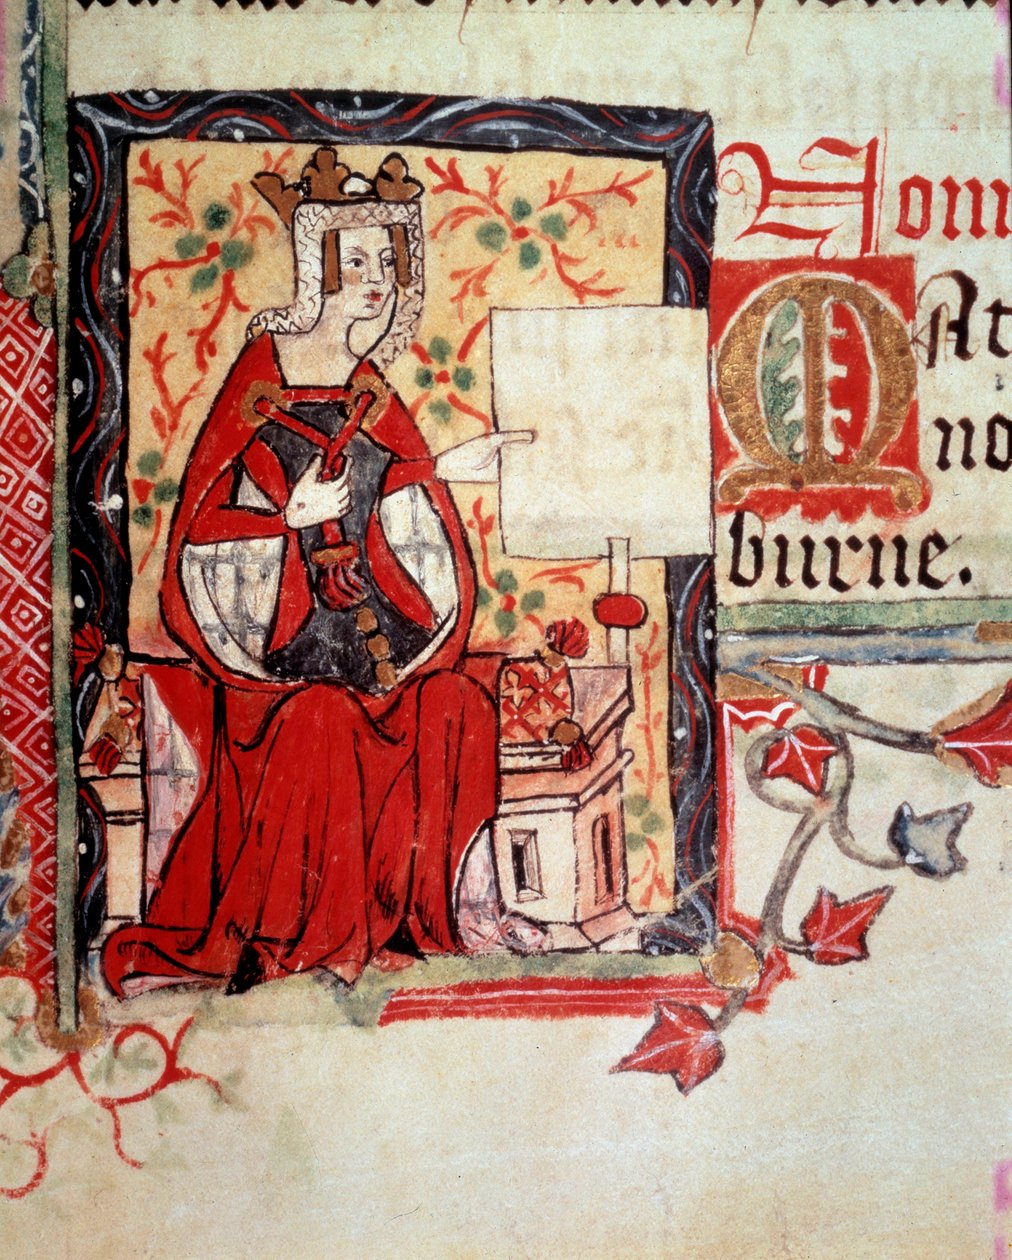 Nom
MAt
no
burne.